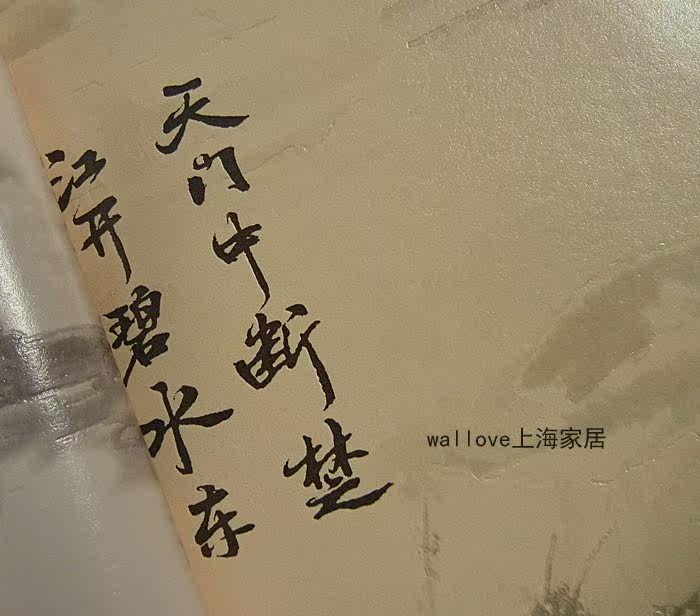 天门中断楚
江开碧水东
wallove上海家居